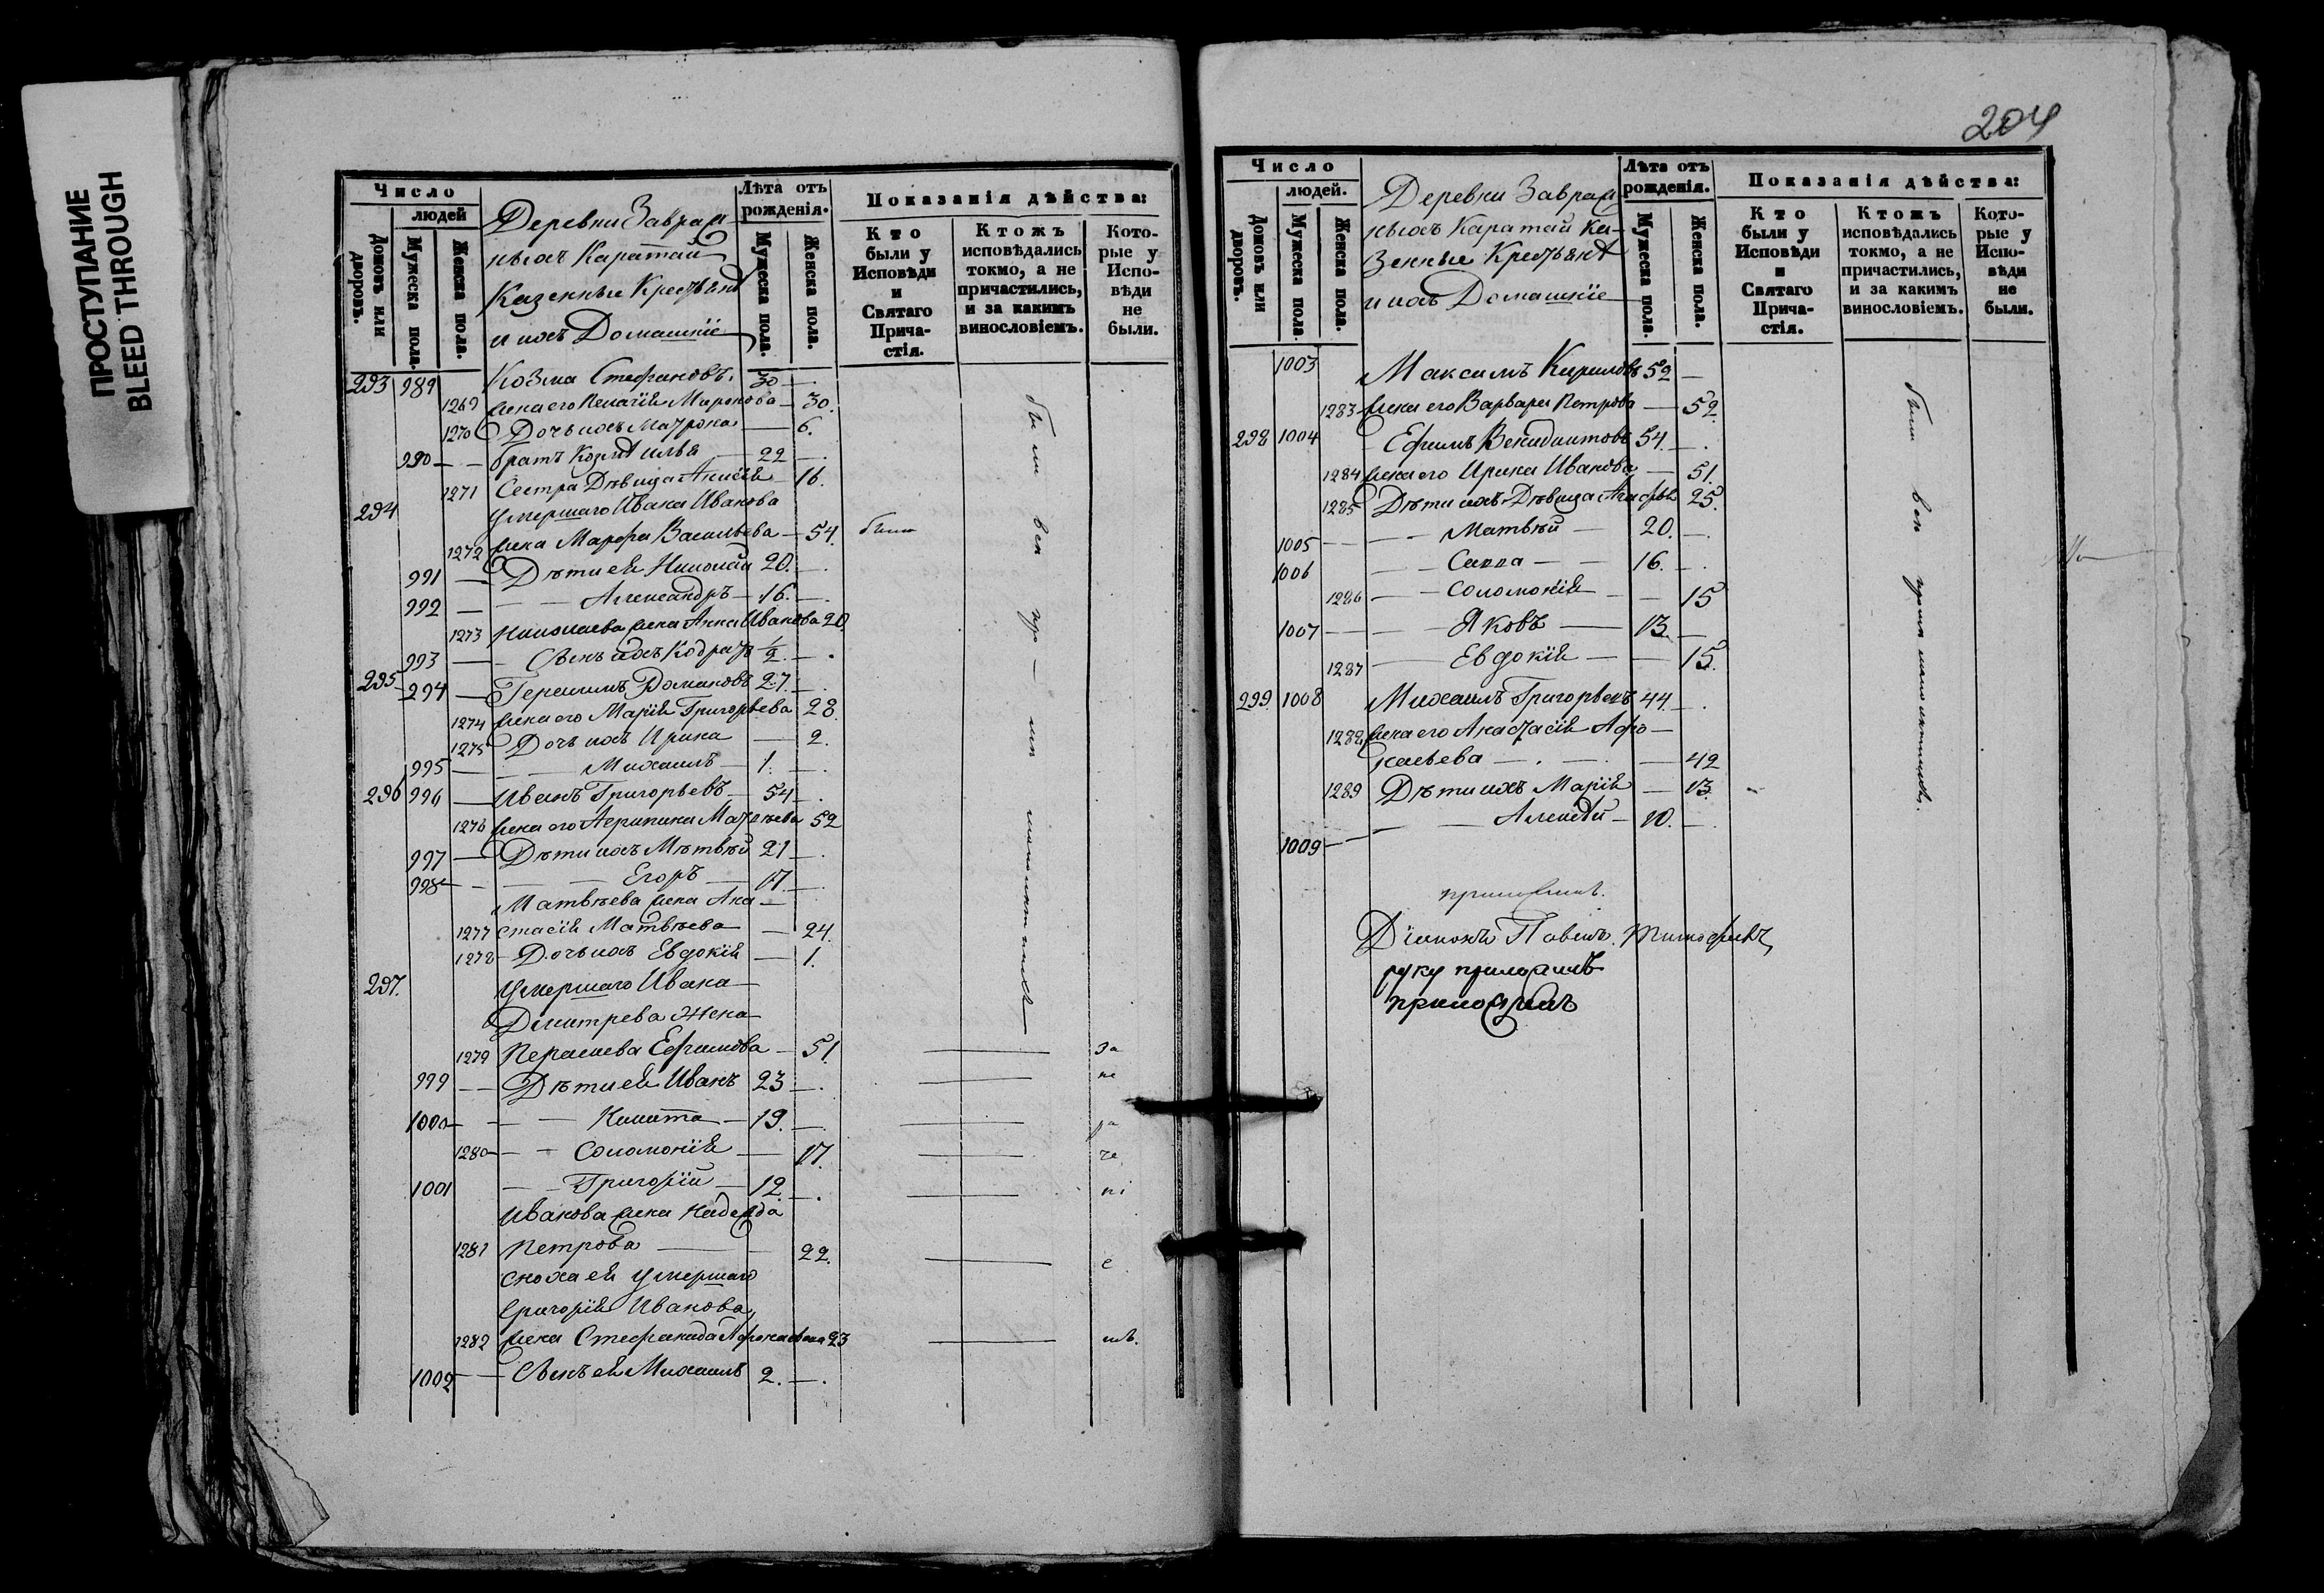 ПРОСТУПАНИЕ
BLEED THROUGH
Число
людей
Домовъ или дворовъ.
Мужеска пола.
Женска пола.
Деревни Завраж-
ныхъ Каратай
Казенные Крестьянѣ
и ихъ Домашніе
Лѣта отъ рожденія.
Мужеска пола.
Женска пола.
Показанія дѣйства:
Кто были у Исповѣди и Святаго Прича-стія.
Ктожъ исповѣдались токмо, а не причастились, и за какимъ винословіемъ.
Кото-рые у Испо-вѣди не были.
293 989 Козма Стефановъ. 30 —.
1269 жена его Пелагія Миронова — 30.
1270 Дочь ихъ Матрона — 6.
990 — — братъ Козмѣ Илья — 22 —.
1271 Сестра Дѣвица Анисія 16.
294 Умершаго Ивана Иванова
1272 жена Марфа Васильева — 54. были
991 — Дѣти ея Николай 20. —.
992 — — — Александръ — 16. —.
1273 Николаева жена Анна Иванова 20.
993 — — Сынъ ихъ Кодратъ ½ —.
295 994 — Герасимъ Домановъ 27. —.
1274 жена его Марія Григорьева 28.
1275 Дочь ихъ Ирина — 2.
995 — — — Михаилъ — 1. —.
296 996 — Иванъ Григорьевъ — 54 —.
1276 жена его Агрипина Матвѣева 52
997 — Дѣти ихъ Матвѣй 21 —.
998 — — — Егоръ — 17. —.
Матвѣева жена Ана —
1277 стасія Матвѣева — 24.
1278 — Дочь ихъ Евдокія — 1.
297. Умершаго Ивана —
Дмитрева жена
1279 Парасиева Ефимова — 51.
999 — — Дѣти ея Иванъ 23 —.
1000 — — — Никита — 19. —.
1280 — — Соломонія — 17.
1001 — — Григорій — 12. —.
Иванова жена Надежда
1281 Петрова — — 22.
Сноха ея умершаго
Григорія Иванова,
1282 жена Стефанида Афонасьева 23
1002 — — Сынъ ея Михаилъ 2. —.
за
не
ра
че
ні
е
мъ.
204
Число
людей.
Домовъ или дворовъ.
Мужеска пола.
Женска пола.
Деревни Завраж
ныхъ Каратай Ка-
зенные Крестьянѣ
и ихъ Домашніе
Лѣта отъ рожденія.
Мужеска пола.
Женска пола.
Показанія дѣйства:
Кто были у Исповѣди и Святаго Прича-стія.
Ктожъ исповѣдались токмо, а не причастились, и за какимъ винословіемъ.
Кото-рые у Испо-вѣди не были.
1003 Максимъ Кириловъ 52 —
1283 жена его Варвара Петрова — 52.
298 1004 Ефимъ Венидиктовъ 54. —.
1284 жена его Ирина Иванова — 51.
1285 Дѣти ихъ Дѣвица Агафья 25.
1005 — — — Матвѣй — 20. —.
1006 — — Савва — — 16. —.
1286 — — Соломонія — — 15
1007 — — — Яковъ — 13. —
1287 — Евдокія — — 15.
299. 1008 Михаилъ Григорьевъ 44. —.
1288 жена его Анастасія Афо —
насьева — . — . — 42
1289 Дѣти ихъ Марія — 13.
— — Алексѣй — 10. —.
1009 —
Діаконъ Павелъ Тимофѣевъ
руку приложилъ